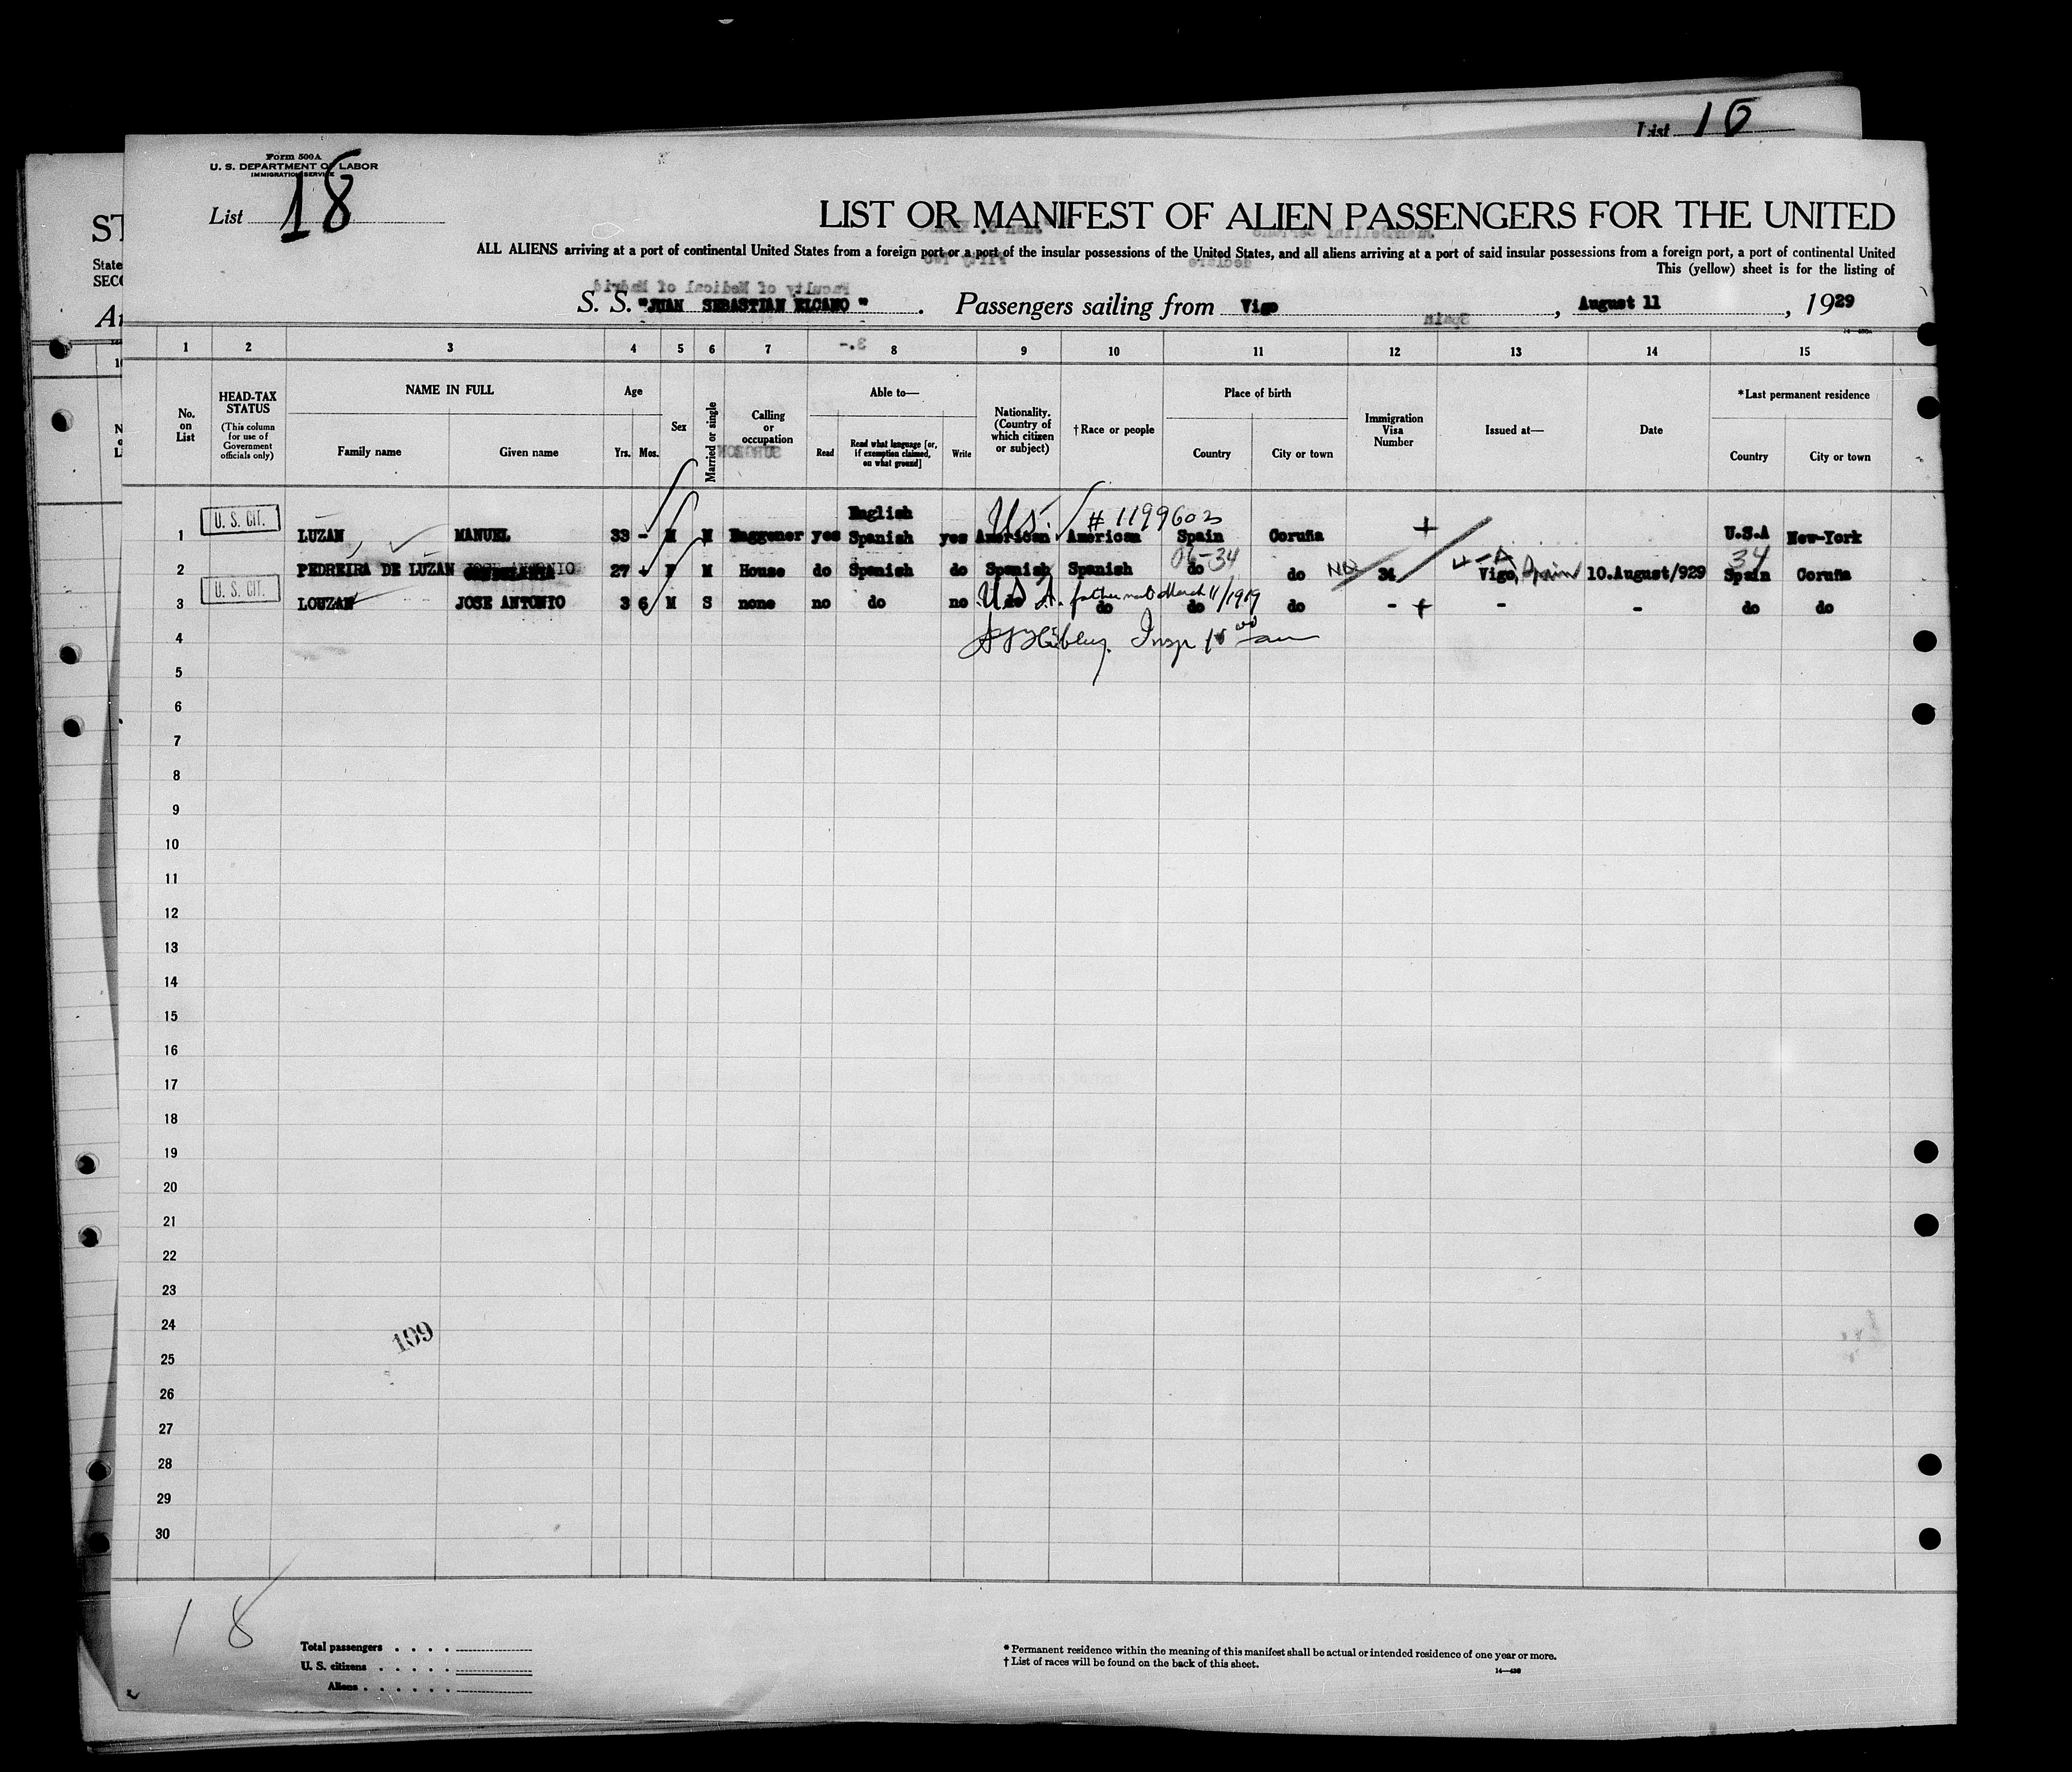 List 16
Form 500A
U. S. DEPARTMENT OF LABOR
IMMIGRATION SERVICE
List 18
LIST OR MANIFEST OF ALIEN PASSENGERS FOR THE UNITED
ALL ALIENS arriving at a port of continental United States from a foreign port or a port of the insular possessions of the United States, and all aliens arriving at a port of said insular possessions from a foreign port, a port of continental United
This (yellow) sheet is for the listing of
S. S. "JUAN SEBASTIAN ELCANO". Passengers sailing from Vigo, August 11, 1929
ST
State
SECO
1 2 3 4 5 6 7 8 9 10 11 12 13 14 15
No. on List
HEAD-TAX STATUS
(This column for use of Government officials only)
NAME IN FULL
Family name Given name
Age
Yrs. Mos.
Sex
Married or single
Calling or occupation
Able to—
Read
Read what language [or, if exemption claimed, on what ground]
Write
Nationality. (Country of which citizen or subject)
†Race or people
Place of birth
Country City or town
Immigration Visa Number
Issued at—
Date
*Last permanent residence
Country City or town
U. S. CIT.
English U.S. # 1199602
1 LUZAN MANUEL 33 - M M yes Spanish yes American American Spain Coruña U.S.A New-York
06-34 34
2 PEDREIRA DE LUZAN 27 - F M House do Spanish do Spanish Spanish do do No 34 Vigo, Spain 10.August/929 Spain Coruña
U. S. CIT.
3 LOUZAN JOSE ANTONIO 3 6 M S none no do no U.S.A. father nat March 11/1919 do do do - - - do do
4 Insp
5
6
7
8
9
10
11
12
13
14
15
16
17
18
19
20
21
22
23
24
109
25
26
27
28
29
30
18
Total passengers
U. S. citizens
Aliens
* Permanent residence within the meaning of this manifest shall be actual or intended residence of one year or more.
† List of races will be found on the back of this sheet.